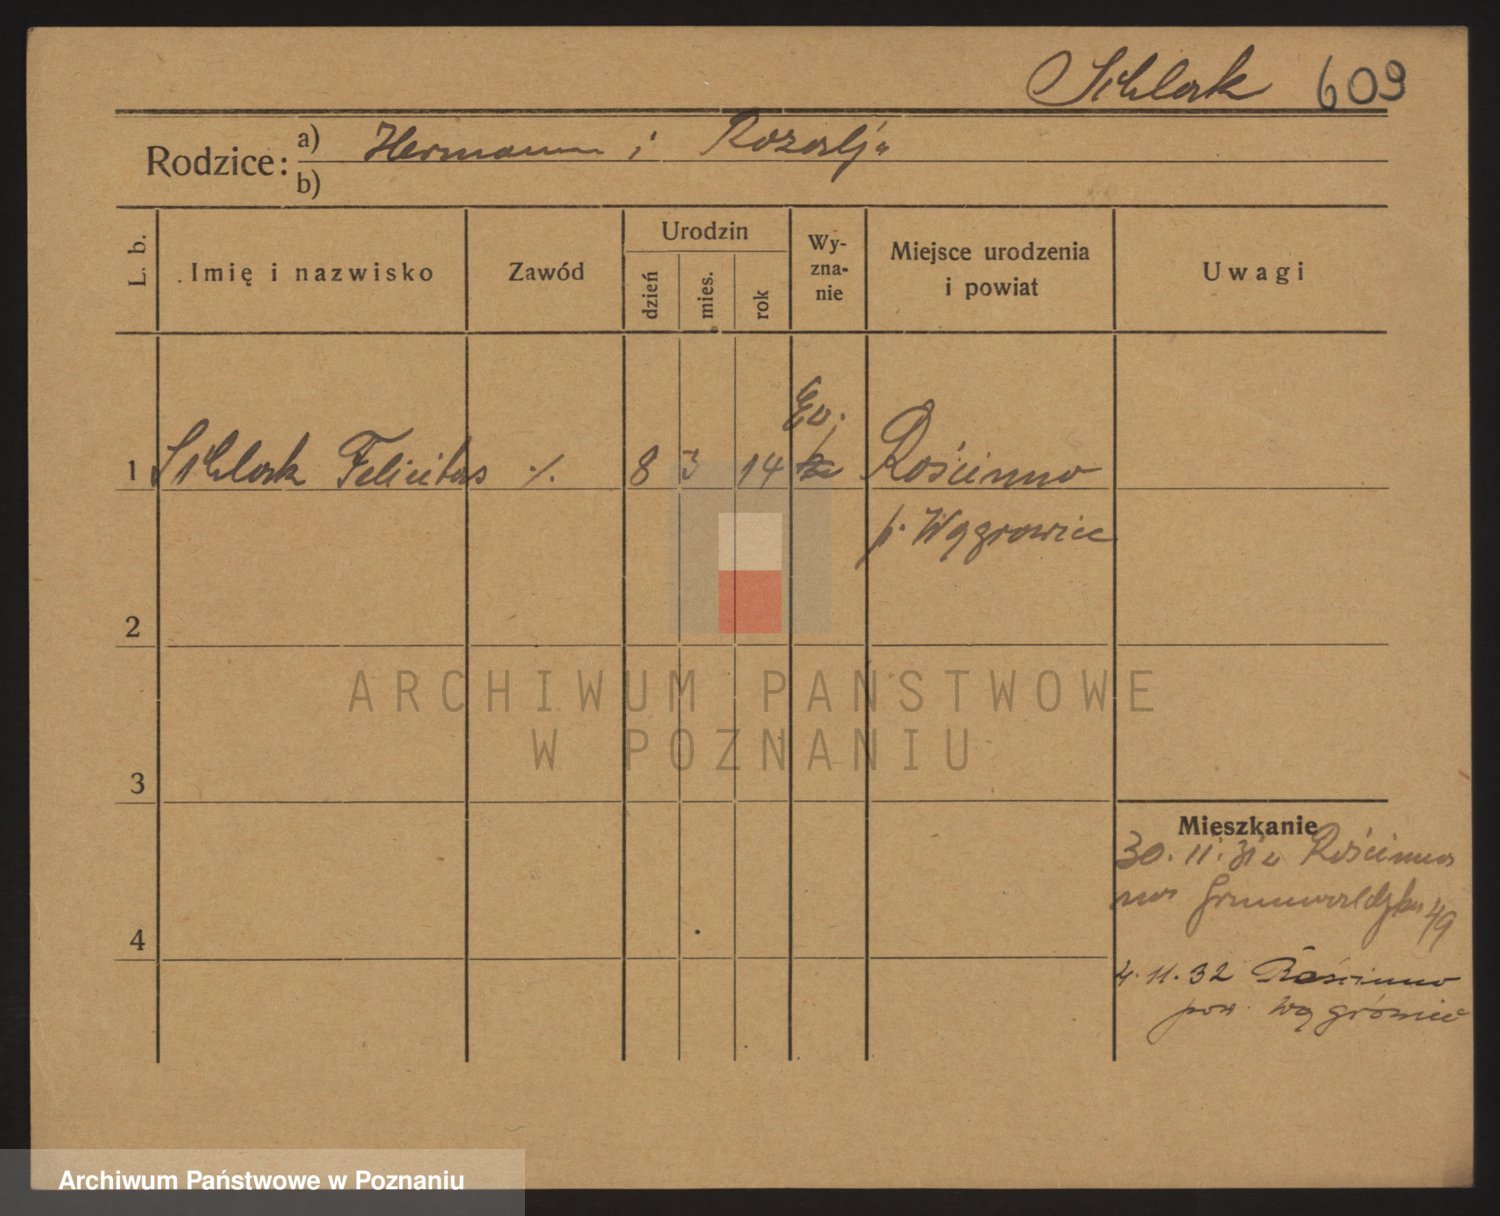 Schlork 609
Rodzice: a) Hermann i Rozalja
b)
L. b. Imię i nazwisko Zawód Urodzin dzień mies. rok Wy-zna-nie Miejsce urodzenia i powiat Uwagi
Ev.
1 Schlork Felicitas ./. 8 3 14 Rościnno
p. Wągrowiec
2
3
4
Mieszkanie
30. 11. 31 z Rościnna
na Grunwaldzka 49
4. 11. 32 Rościnno
pow. Wągrówiec
ARCHIWUM PAŃSTWOWE
W POZNANIU
Archiwum Państwowe w Poznaniu